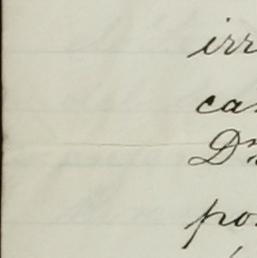 irr
cas
Dr
po